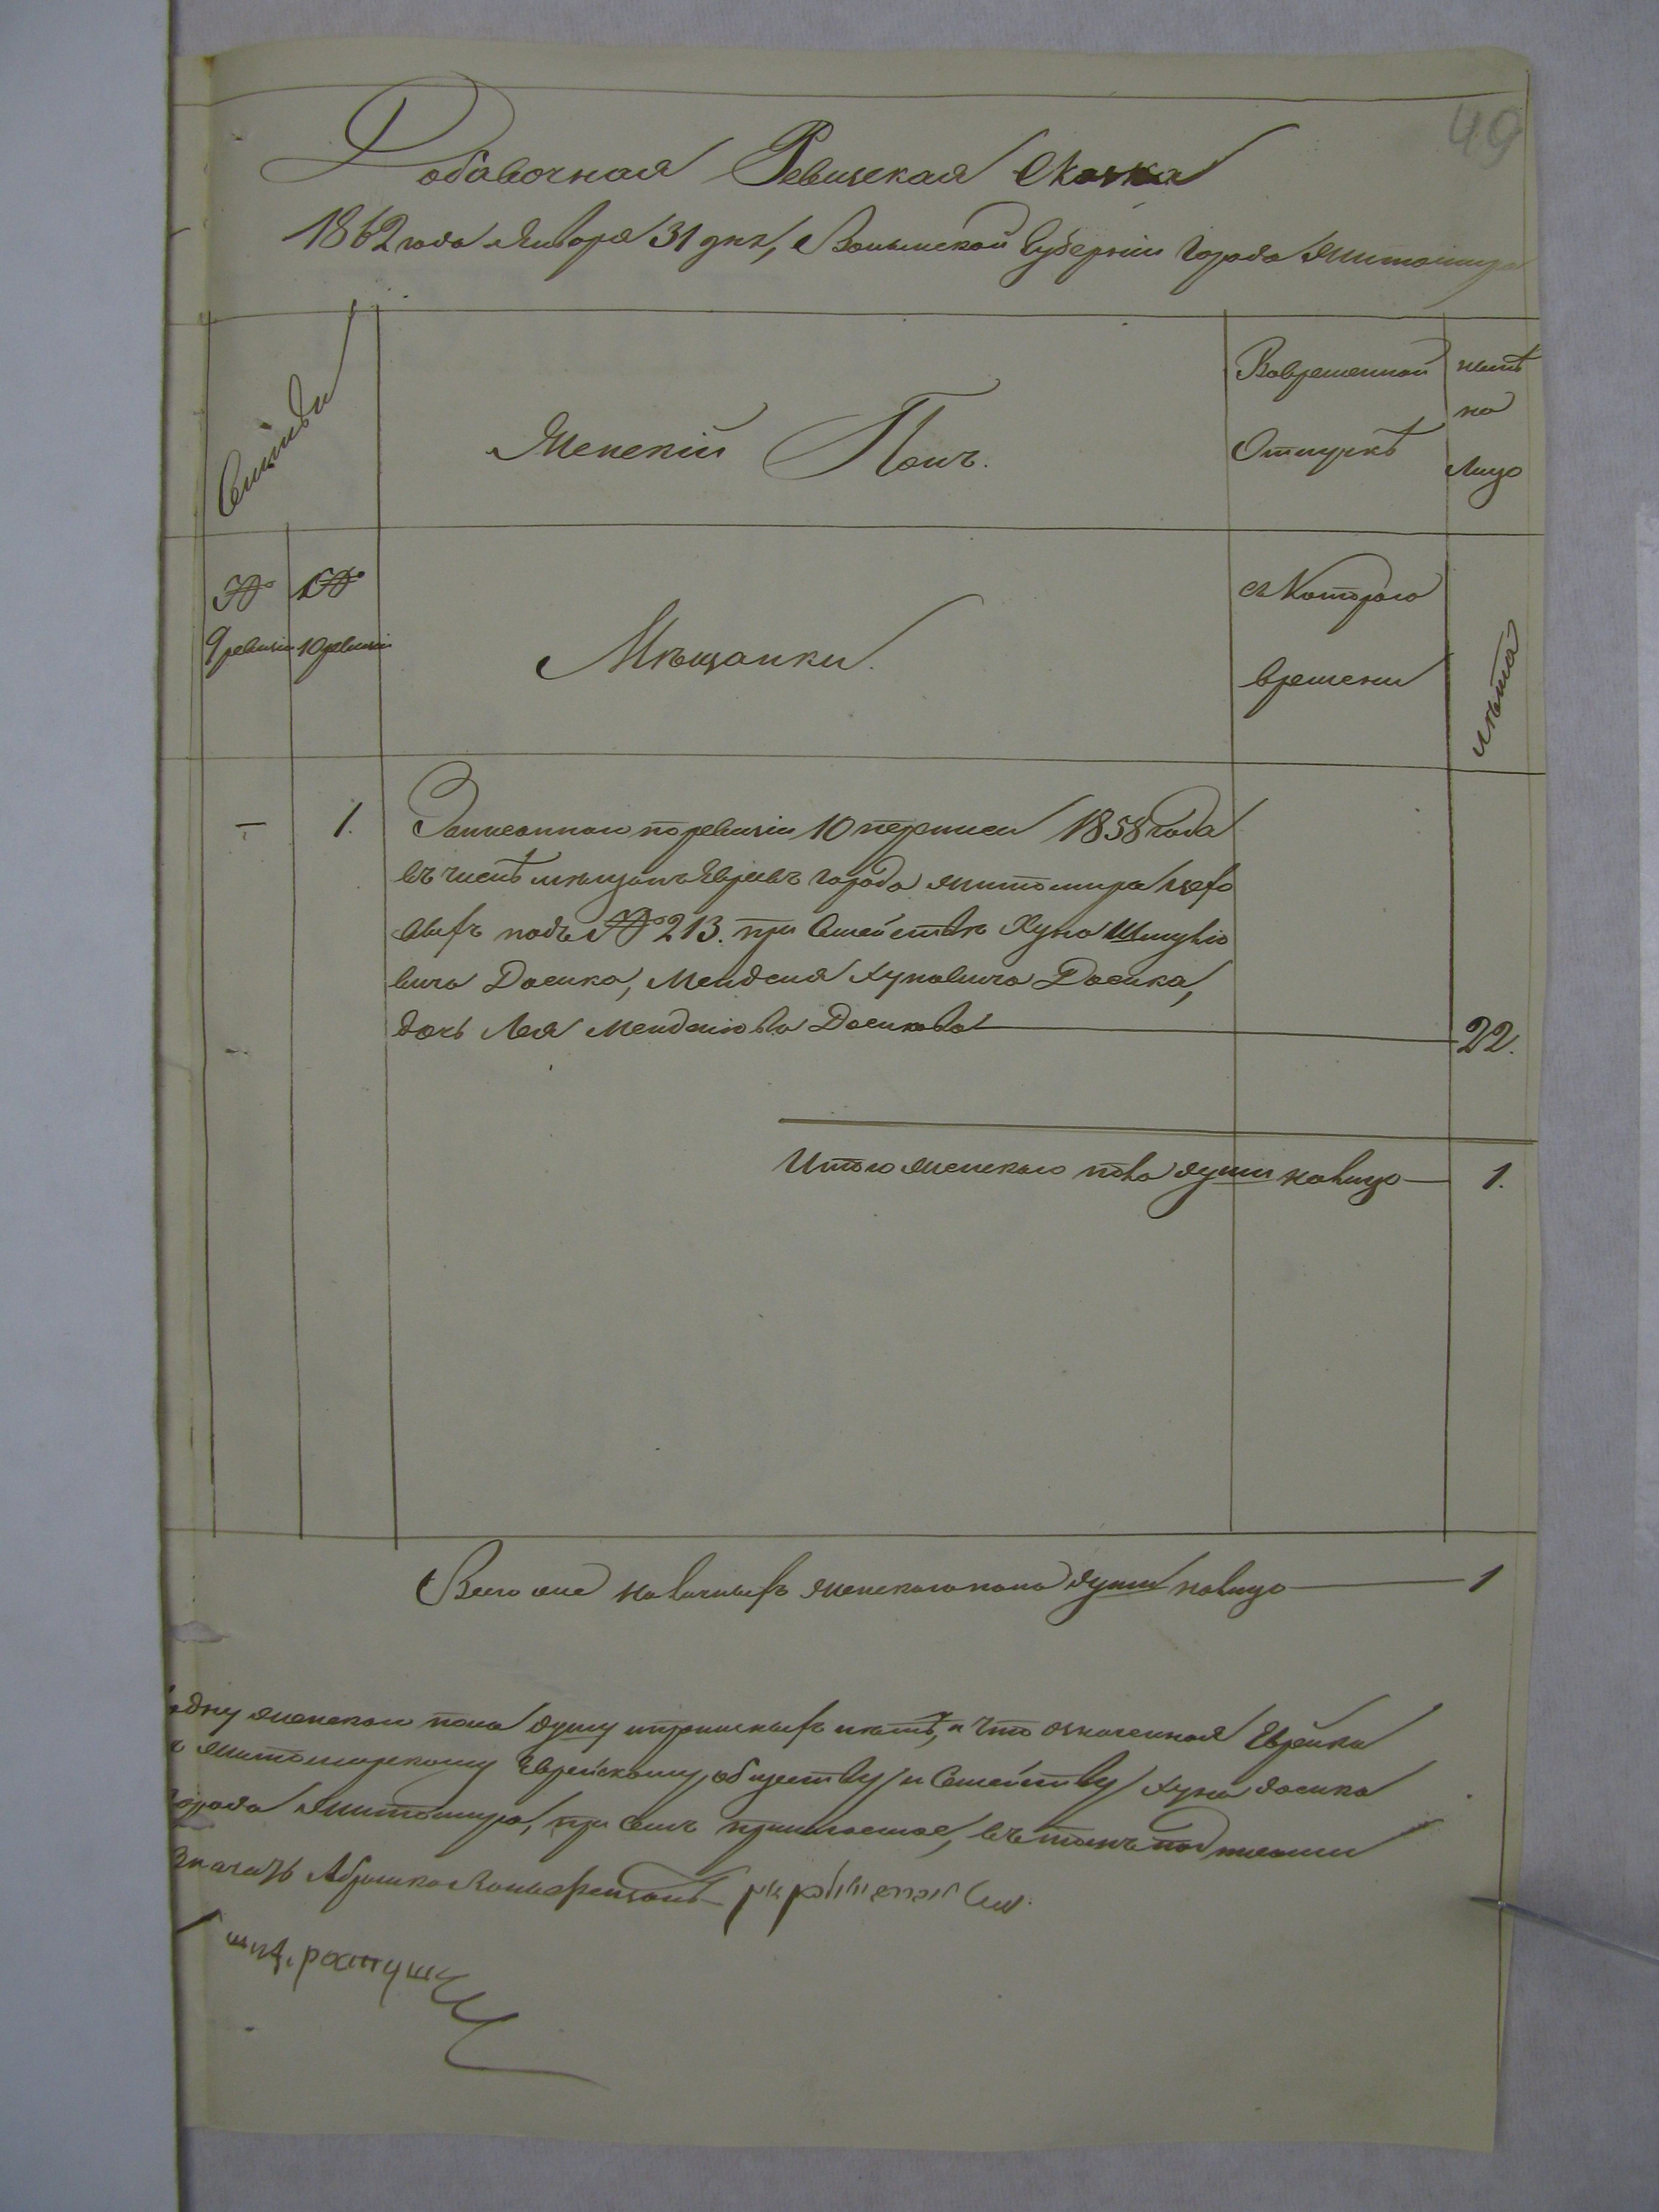 49
Добавочная Ревизская Сказка
1862 года Января 31 дня, Волынской Губерніи Города Житомира
Семьи
Женскій Полъ.
Вовременной
Отлучкѣ
нынѣ
на
Лицо
№
9 ревизіи
№
10 ревизіи
Мѣщанки.
съ Котораго
времени
лѣта
— 1. Записанного по ревизіи 10 переписи 1858 года
въ числѣ мѣщанъ Евреевъ города Житомира
подъ № 213. при Семействѣ Хуна Шмуліо
вича Досика, Менделя Хуновича Досика,
дочь Лея Менделіова Досикова — 22.
Итого женского пола души налицо — 1.
Всего же наличныхъ женского пола души налицо — 1
одну женского пола душу и что означенная Еврейка
Житомирскому Еврейскому обществу и Семейству Хуна Досика
города Житомира, при семъ прилагаемое, въ томъ подписами
ратуши